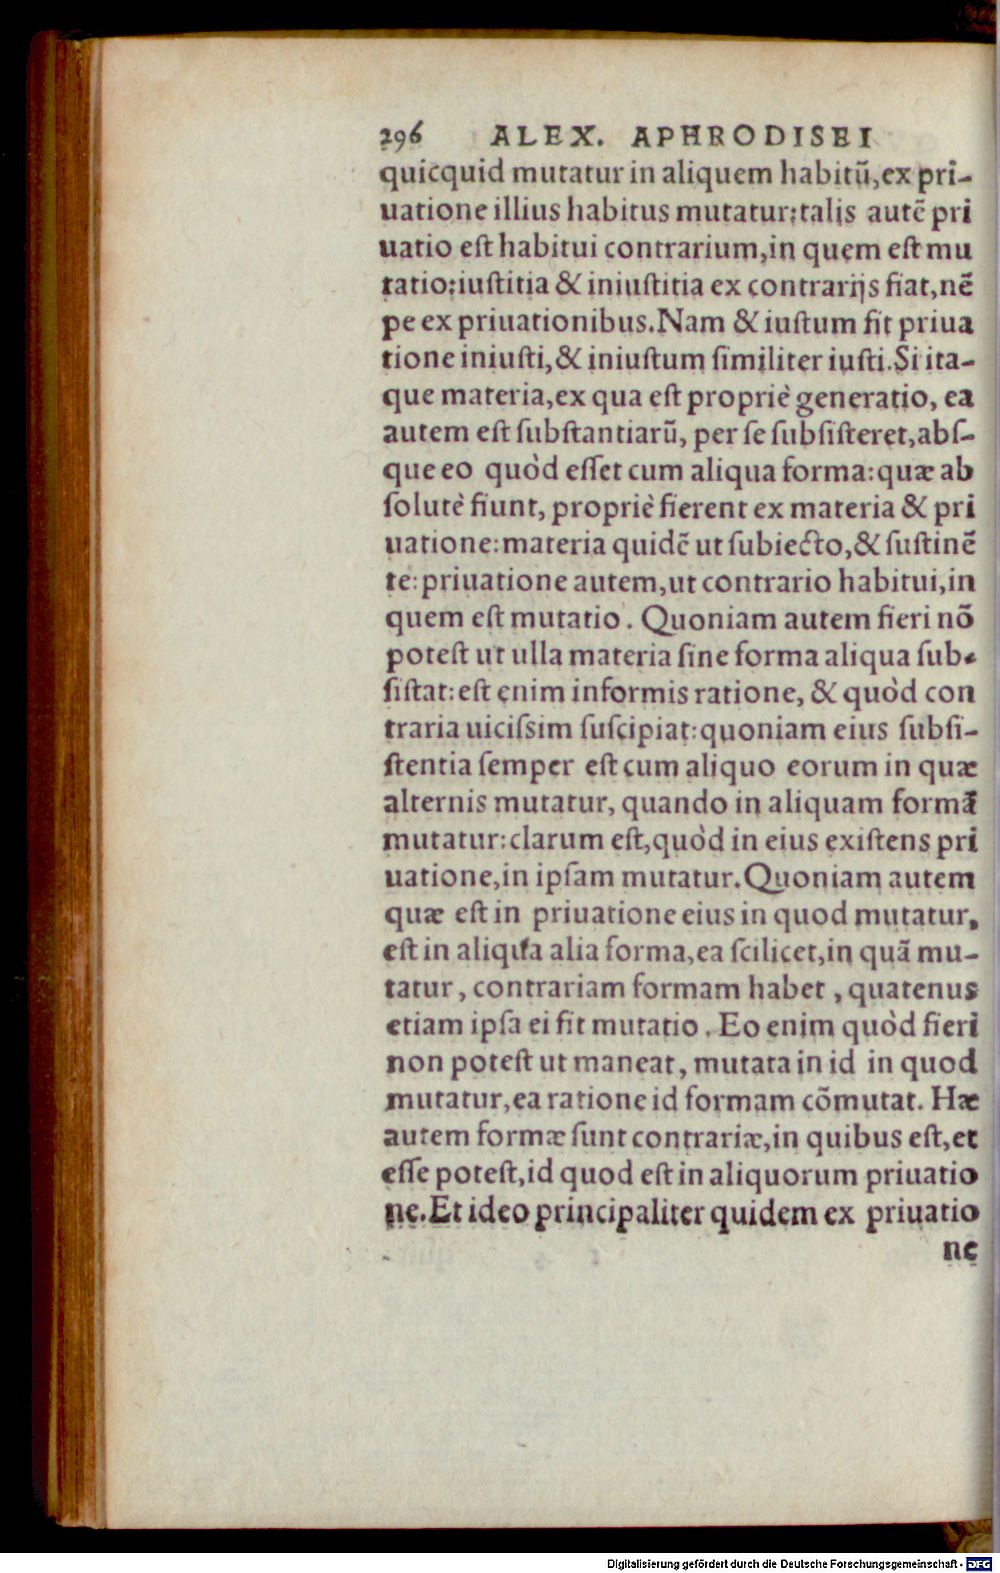 296 ALEX. APHRODISEI
quicquid mutatur in aliquem habitū, ex pri-
uatione illius habitus mutatur: talis autē pri
uatio eſt habitui contrarium, in quem eſt mu
tatio: iuſtitia & iniuſtitia ex contrarijs fiat, nē
pe ex priuationibus. Nam & iuſtum fit priua
tione iniuſti, & iniuſtum ſimiliter iuſti. Si ita-
que materia, ex qua eſt propriè generatio, ea
autem eſt ſubſtantiarū, per ſe ſubſiſteret, abſ-
que eo quòd eſſet cum aliqua forma: quæ ab
ſolutè fiunt, propriè fierent ex materia & pri
uatione: materia quidē ut ſubiecto, & ſuſtinē
te: priuatione autem, ut contrario habitui, in
quem eſt mutatio. Quoniam autem fieri nō
poteſt ut ulla materia ſine forma aliqua ſub-
ſiſtat: eſt enim informis ratione, & quòd con
traria uiciſsim ſuſcipiat: quoniam eius ſubſi-
ſtentia ſemper eſt cum aliquo eorum in quæ
alternis mutatur, quando in aliquam formā
mutatur: clarum eſt, quòd in eius exiſtens pri
uatione, in ipſam mutatur. Quoniam autem
quæ eſt in priuatione eius in quod mutatur,
eſt in aliqua alia forma, ea ſcilicet, in quā mu-
tatur, contrariam formam habet, quatenus
etiam ipſa ei fit mutatio. Eo enim quòd fieri
non poteſt ut maneat, mutata in id in quod
mutatur, ea ratione id formam cōmutat. Hæ
autem formæ ſunt contrariæ, in quibus eſt, et
eſſe poteſt, id quod eſt in aliquorum priuatio
ne. Et ideo principaliter quidem ex priuatio
ne
Digitalisierung gefördert durch die Deutsche Forschungsgemeinschaft - DFG